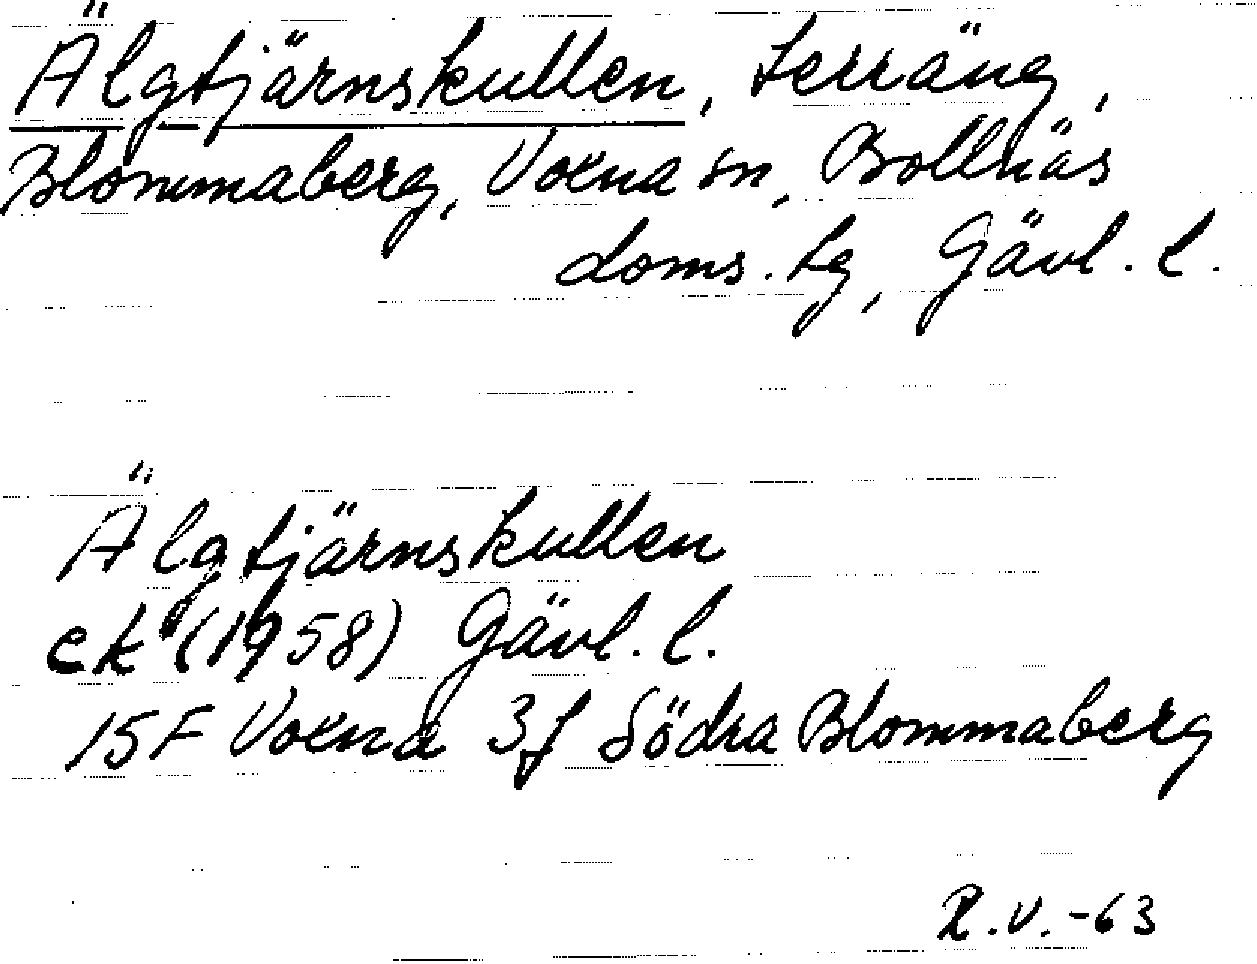 Älgtjärnskullen, terräng,
Blommaberg, Voxna sn, Bollnäs
doms. tg, Gävl. l.
Älgtjärnskullen
ek (1958) Gävl. l.
15F Voxna 3f Södra Blommaberg
R.V. -63